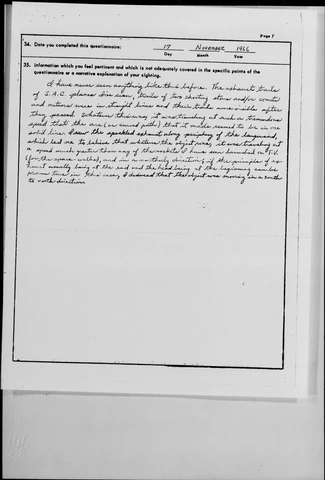 Page 7
34. Date you completed this questionnaire: 17 November 1966
Day Month Year
35. Information which you feel pertinent and which is not adequately covered in the specific points of the
questionnaire or a narrative explanation of your sighting.
I have never seen anything like this before. The exhaust trails
of S.A.C. planes I've seen, trails of two shooting stars and/or comets
and meteors were in straight lines and their trails were visible after
they passed. Whatever this was, it was traveling at such a tremendous
speed that the arc (or curved path) that it made seemed to be in one
solid line. I saw the sparkled exhaust along periphery of the
which led me to believe that whatever the object was, it was traveling at
a speed much greater than any of the rockets I have seen launched on T.V.
(for the space walks), and in a northerly direction; if the principle of
exhaust usually being at the end and the head being at the beginning can be
proven true in this case, I deduced that the object was moving in a south
to north direction.